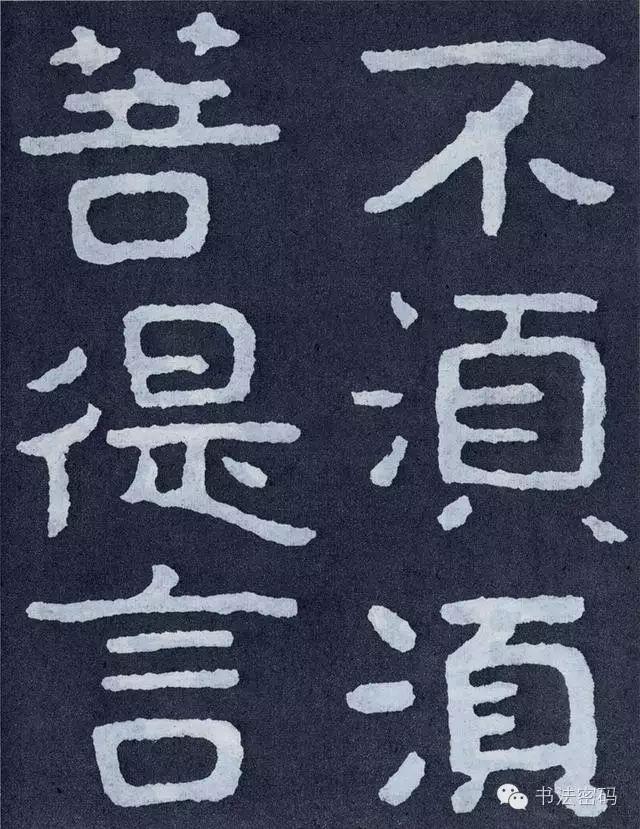 不湏湏
菩徥言
书法密码